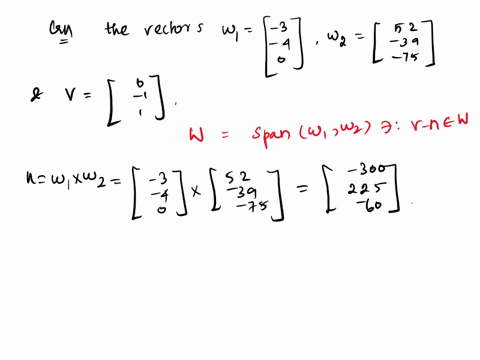 Gn the vectors w₁ = [-3 -4 0], w₂ = [52 -39 -75]
& V = [0 -1 1].
W = span (w₁, w₂) ∋: v-n ∈ W
n = w₁ × w₂ = [-3 -4 0] × [52 -39 -75] = [-300 225 -60].